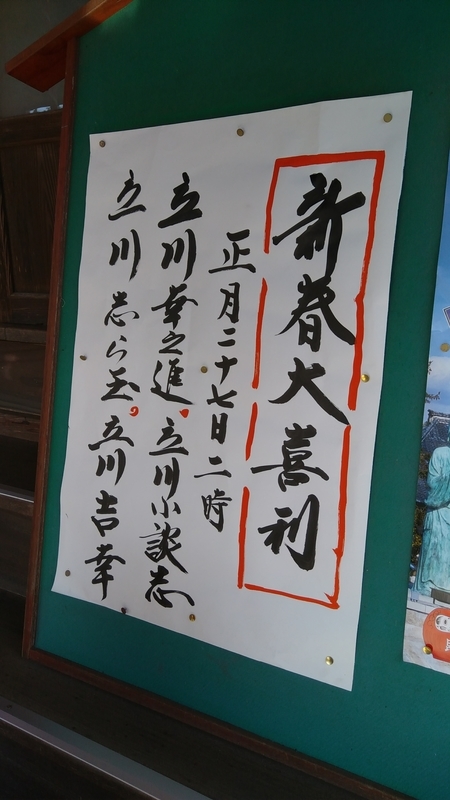 新春大喜利
正月二十七日二時
立川幸之進 立川小談志
立川志ら玉 立川吉幸